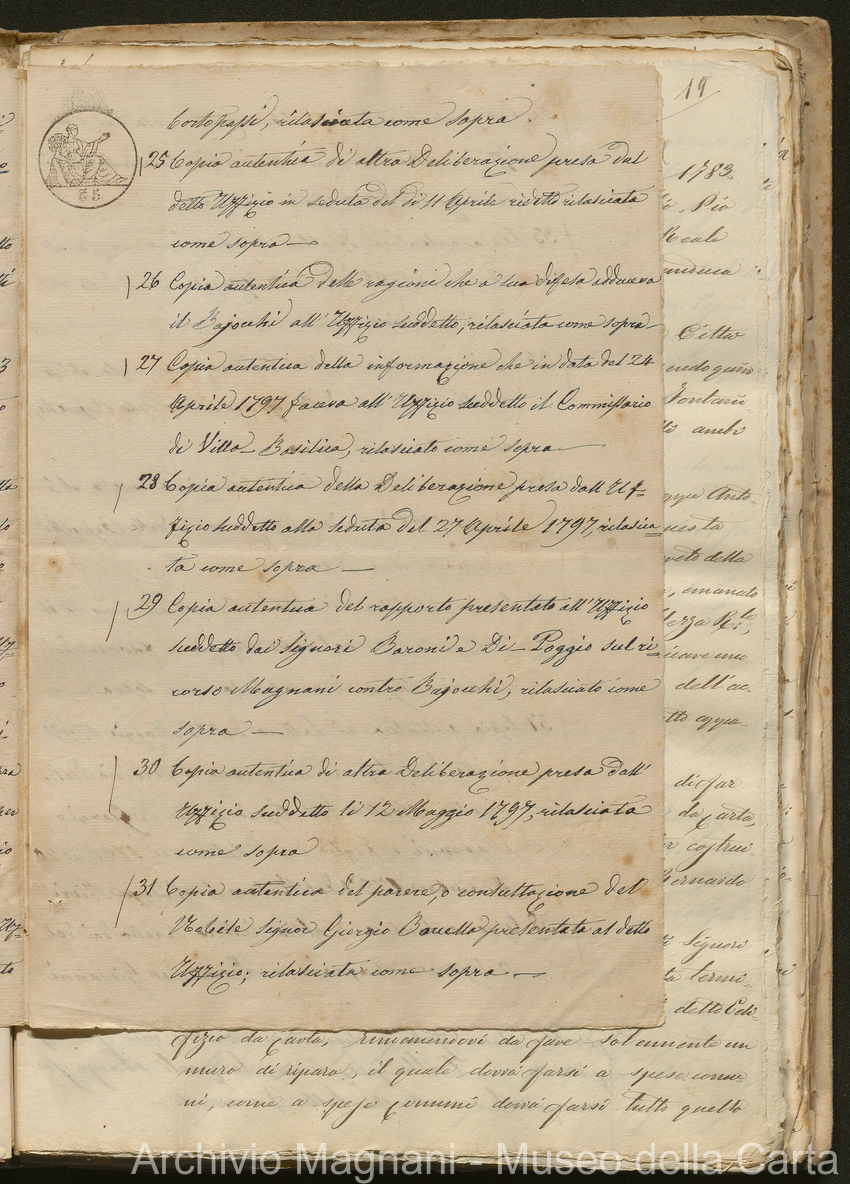 Cortopassi, rilasciata come sopra.
25 Copia autentica di altra Deliberazione presa dal
detto Uffizio in seduta del dì 11 Aprile ridetto rilasciata
come sopra
26 Copia autentica delle ragioni che a sua difesa adduceva
il Bajocchi all'Uffizio suddetto, rilasciata come sopra
27 Copia autentica della informazione che in data del 24
Aprile 1797 faceva all'Uffizio suddetto il Commissario
di Villa-Basilica, rilasciato come sopra
28 Copia autentica della Deliberazione presa dall Uf-
fizio suddetto alla seduta del 27 Aprile 1797, rilascia
ta come sopra
29 Copia autentica del rapporto presentato all'Uffizio
suddetto dai Signori Baroni e Di-Poggio sul ri-
corso Magnani contro Bajocchi, rilasciato come
sopra
30 Copia autentica di altra Deliberazione presa dall'
Uffizio suddetto li 12 Maggio 1797, rilasciata
come sopra
31 Copia autentica del parere, o consultazione del
Nobile Signor Giorgio presentata al detto
Uffizio; rilasciata come sopra
55
19
1783
Pio
Reale
Città
Fontani
ambi
Anto-
uesta
della
emanato
dell'ac-
di far
da Carta,
costrui
Bernardo
Signori
detto Edi-
fizio da Carta, rimanendovi da fare solamente un
muro di riparo, il quale dovrà farsi a spese comu
ni, come a spese comuni dovrà farsi tutto quello
Archivio Magnani - Museo della Carta